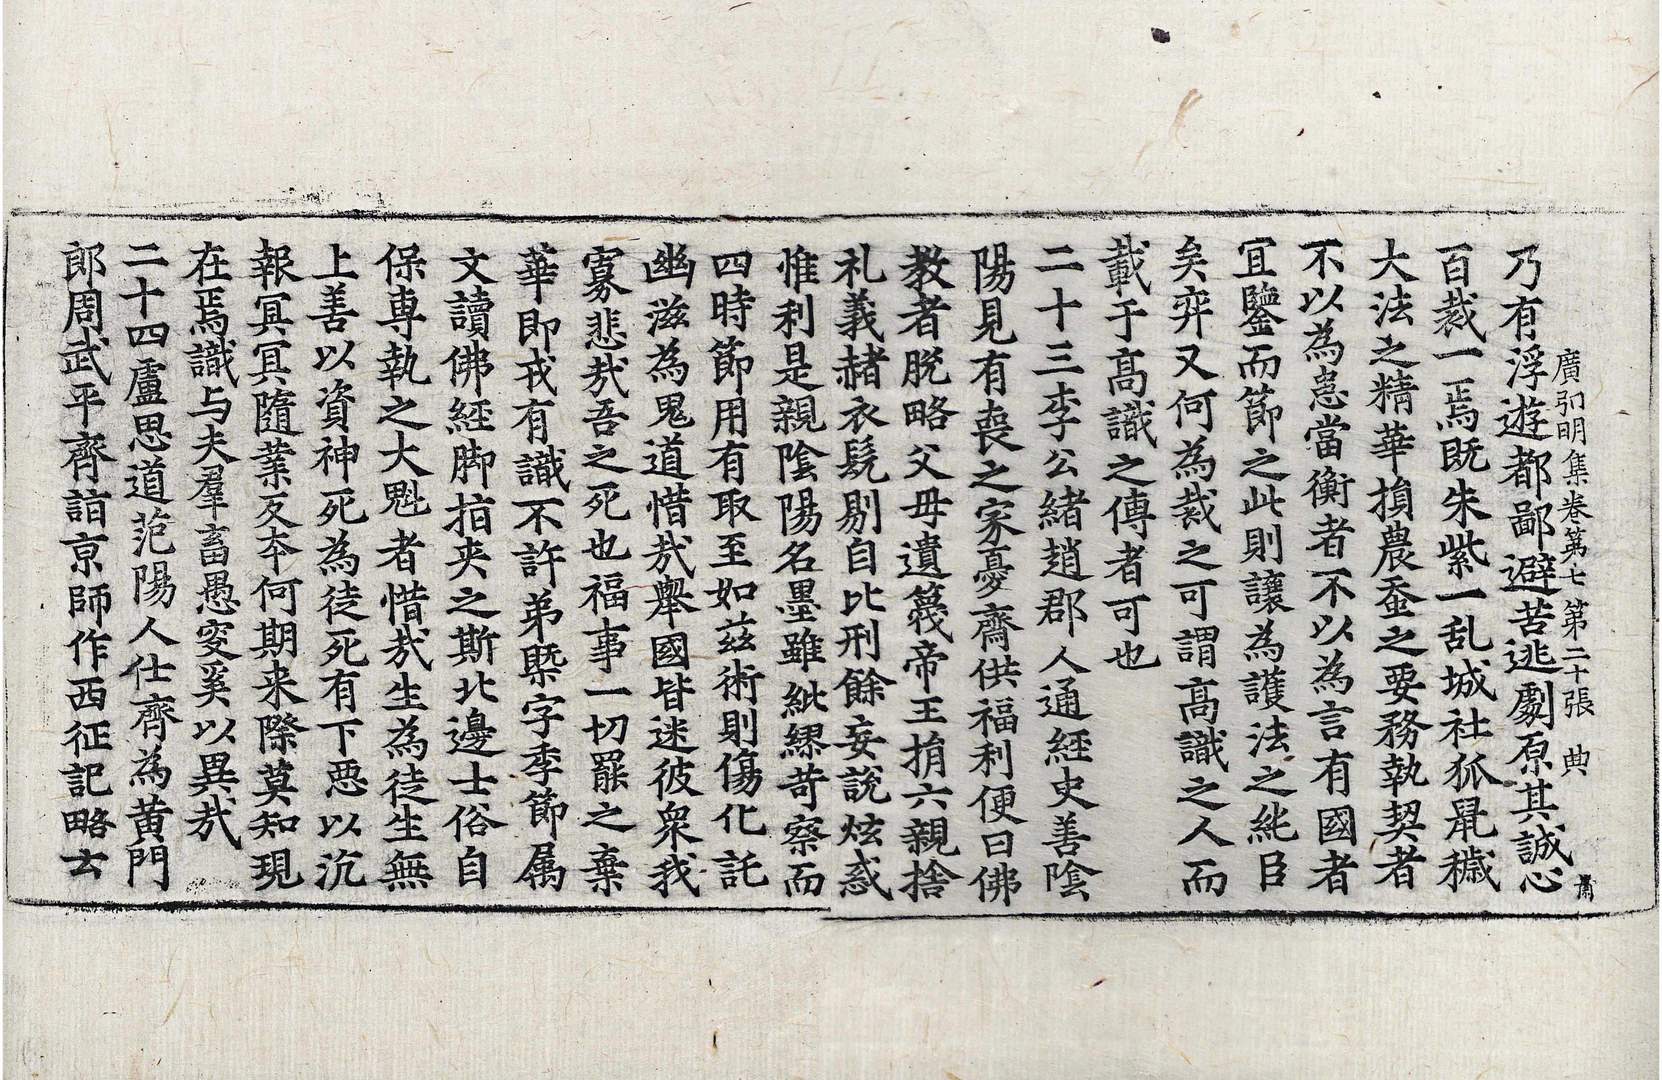 廣弘明集卷第七 第二十張 典
乃有浮遊都鄙避苦逃劇原其誠心
百裁一焉既朱紫一乱城社狐鼠穢
大法之精華損農蚕之要務執契者
不以為患當衡者不以為言有國者
宜鑒而節之此則讓為護法之純臣
矣弈又何為裁之可謂高識之人而
載于高識之傳者可也
二十三李公緒趙郡人通經史善陰
陽見有喪之家憂齋供福利便曰佛
教者脫略父母遺篾帝王捐六親捨
礼義赭衣髠剔自比刑餘妄說炫惑
惟利是親陰陽名墨雖紕繆苛察而
四時節用有取至如茲術則傷化託
幽滋為鬼道惜㦲舉國皆迷彼衆我
寡悲㦲吾之死也福事一切罷之棄
華即戎有識不許弟槩字季節属
文讀佛經脚指夾之斯北邊士俗自
保專執之大魁者惜㦲生為徒生無
上善以資神死為徒死有下惡以沉
報冥冥隨業反夲何期来際莫知現
在焉識与夫羣畜愚叜奚以異㦲
二十四盧思道范陽人仕齊為黃門
郎周武平齊詣京師作西征記略云
肅